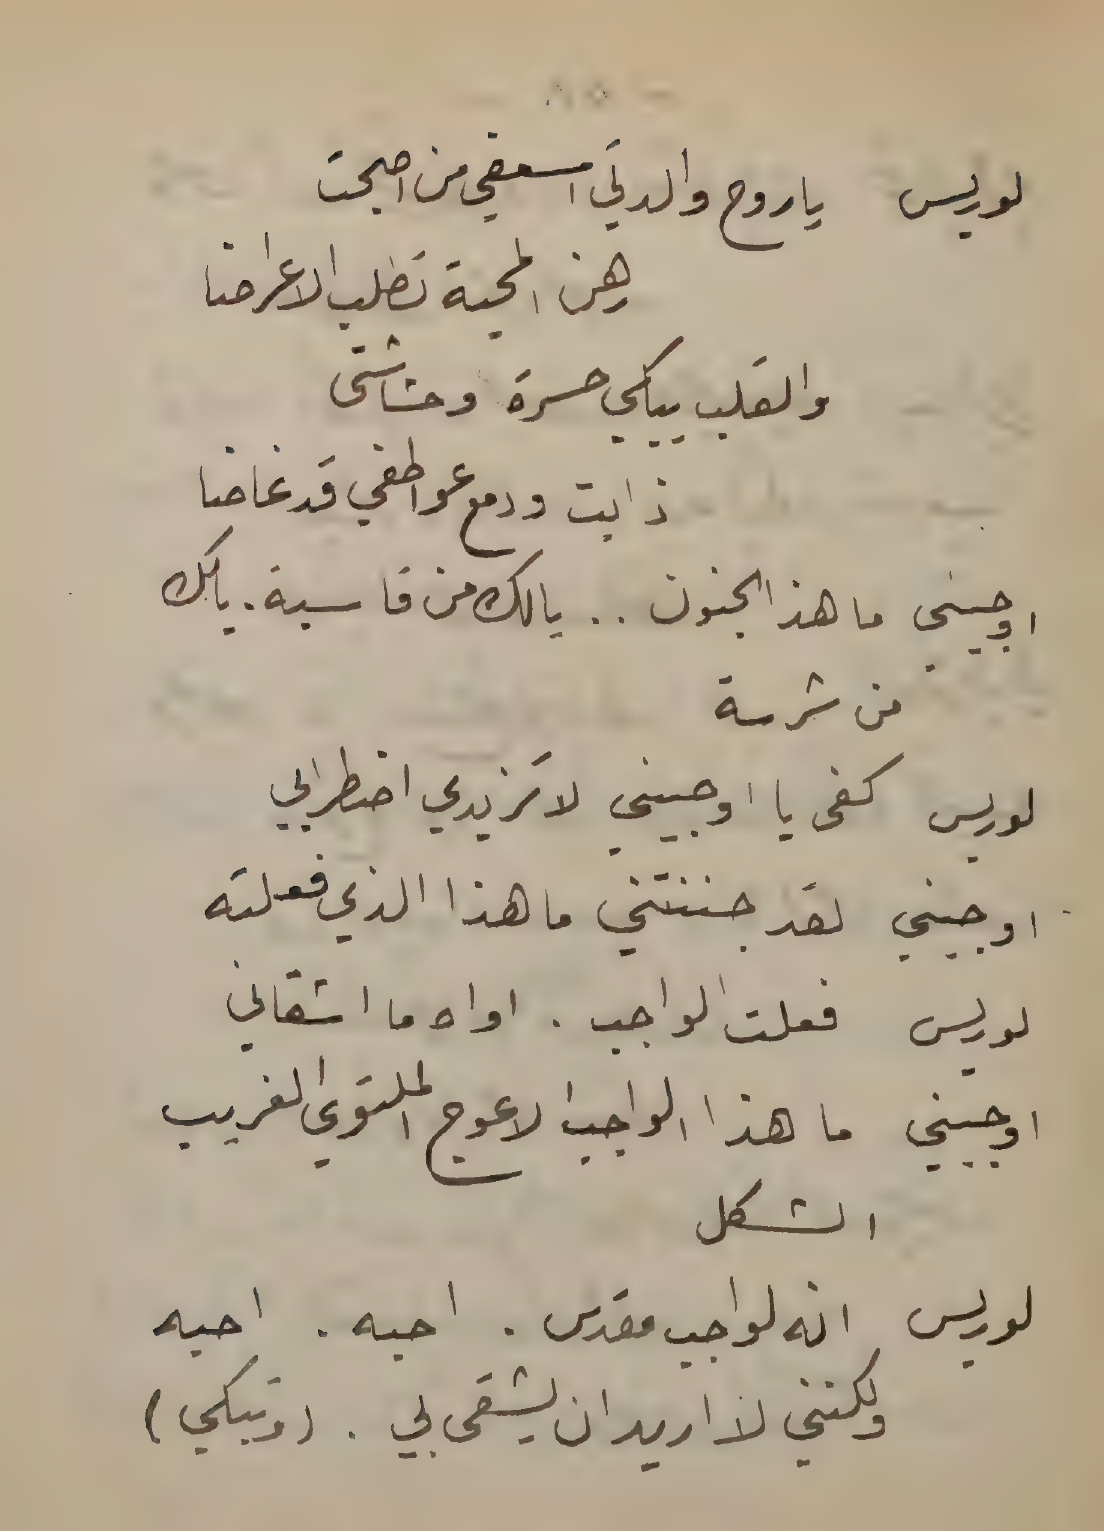 — ٨٥ —
لوريس يا روح والدتي اسعفي من اصبحت
رهن المحبة تطلب الاعراضا
والقلب يبكي حسرة وحشاشتي
ذابت ودمع عواطفي قد غاضا
اوجيني ما هذا الجنون .. يالك من قاسية . يالك
من شرسة
لوريس كفى يا اوجيني لا تزيدي اضطرابي
اوجيني لقد جننتني ما هذا الذي فعلته
لوريس فعلت الواجب . اواه ما اشقاني
اوجيني ما هذا الواجب الاعوج الملتوي الغريب
الشكل
لوريس انه لواجب مقدس . احبه . احبه
ولكنني لا اريد ان يشقى بي . (وتبكي)